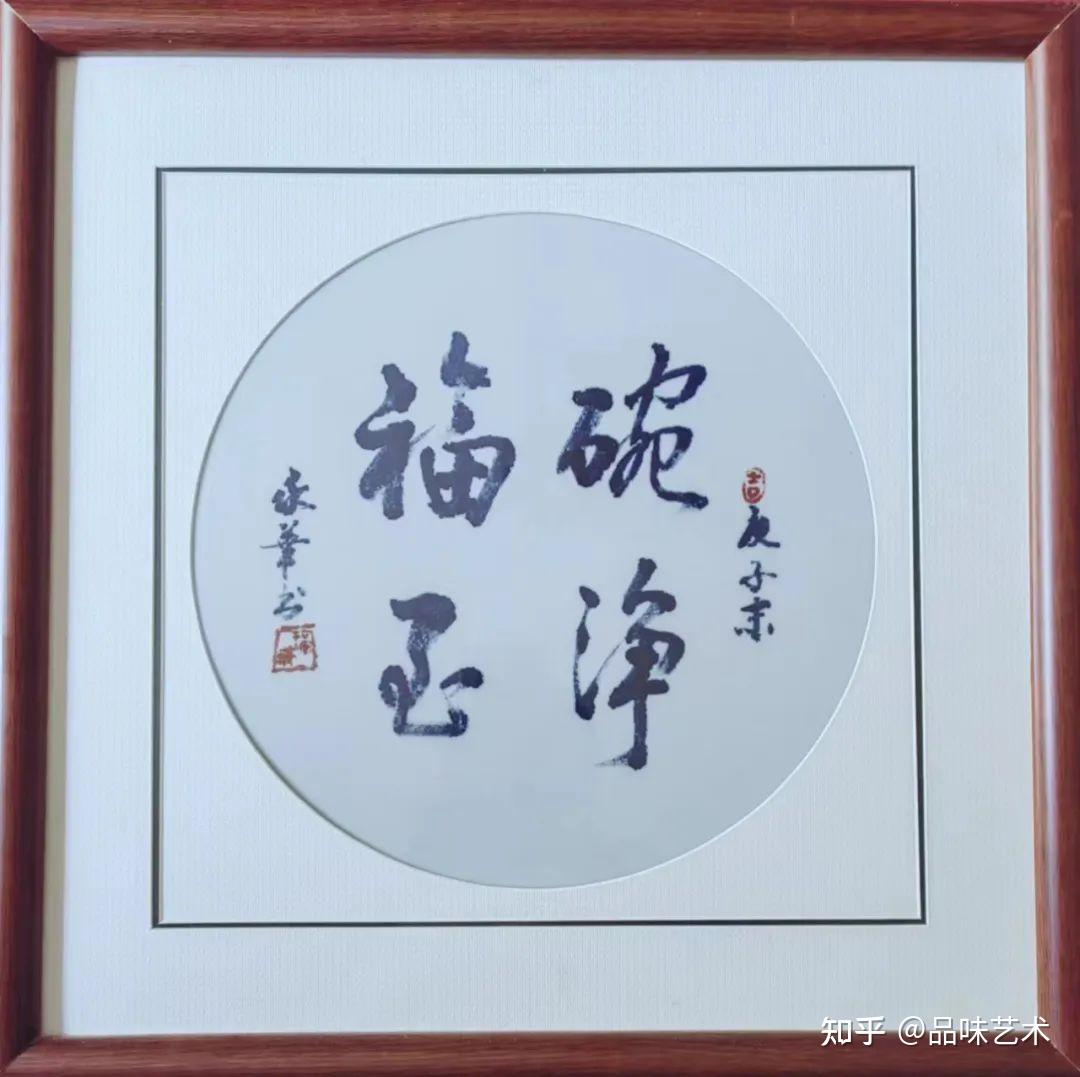 吉
庚子末
碗净
福至
永華书
知乎 @品味艺术